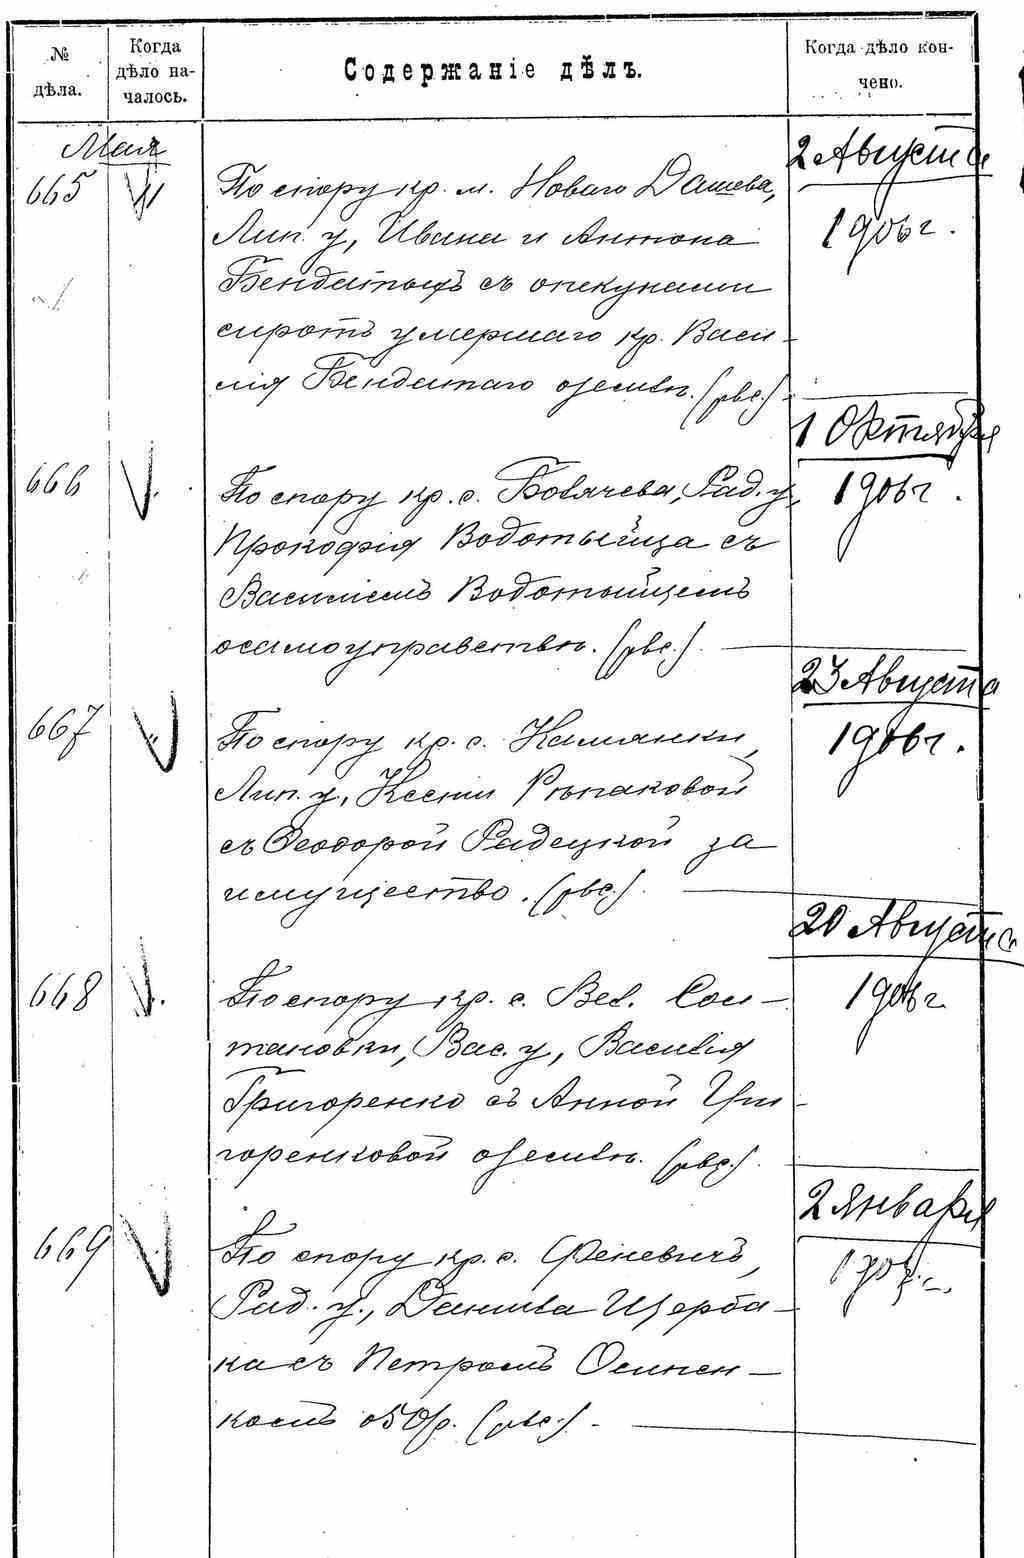 № дѣла.
Когда дѣло на-
чалось.
Содержаніе дѣлъ.
Когда дѣло кон-
чено.
Мая
665
11
По спору кр. м. Новаго Дашева,
Лип. у., Ивана и Антона
Бендитыхъ съ опекунами
сиротъ умершаго кр. Васи-
лія Бендитаго о землѣ.
2 Августа
1906 г.
666
По спору кр. с. Рад. у.,
Прокофія Водотыйца съ
Василіемъ Водотыйцемъ
о самоуправствѣ.
1 Октября
1906 г.
667
"
По спору кр. с. Камянки,
Лип. у., Ксеніи Рѣпаковой
съ Ѳеодорой Радецкой за
имущество.
23 Августа
1906 г.
668
По спору кр. с. Вел. Сол-
тановки, Вас. у., Василія
Григоренко съ Анной Гри-
горенковой о землѣ.
20 Августа
1906 г.
669
По спору кр. с. Феневичъ,
Рад. у., Данила Щерба-
ка съ Петромъ Осипен-
комъ о 50 р.
2 Января
1907 г.